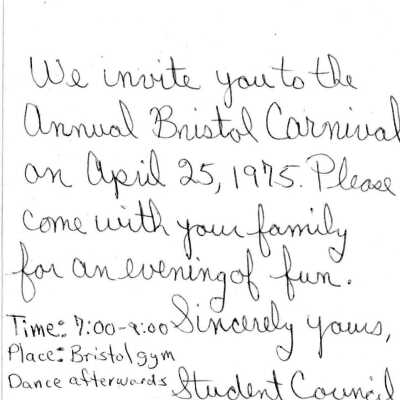 We invite you to the
Annual Bristol Carnival
on April 25, 1975. Please
come with your family
for an evening of fun.
Sincerely yours,
Student Council
Time: 7:00-9:00
Place: Bristol gym
Dance afterwards